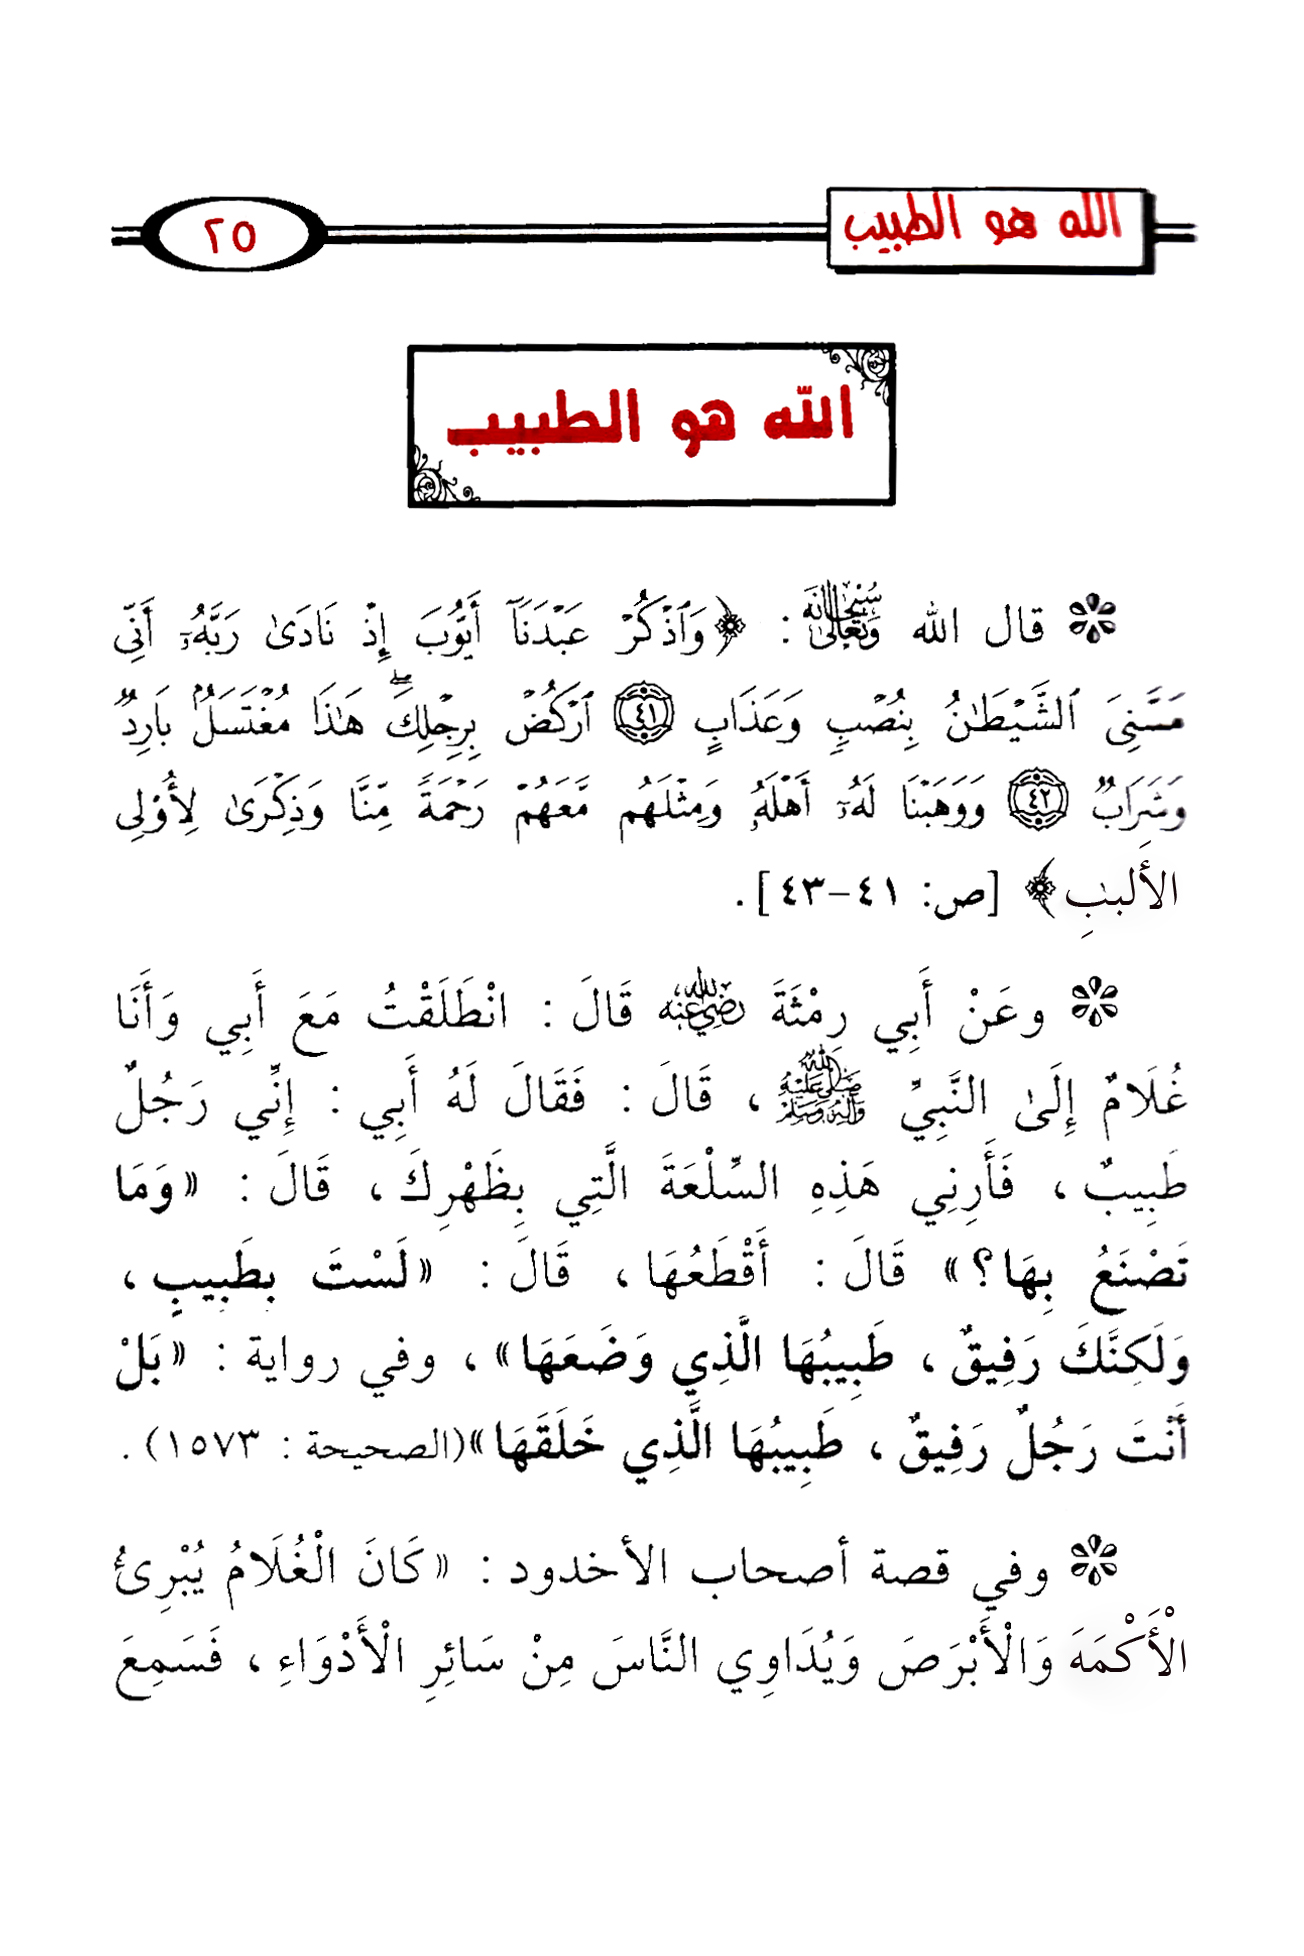 الله هو الطبيب
٢٥
الله هو الطبيب
قال الله سُبْحَانَهُ وَتَعَالَىٰ : ﴿وَٱذۡكُرۡ عَبۡدَنَآ أَيُّوبَ إِذۡ نَادَىٰ رَبَّهُۥٓ أَنِّي
مَسَّنِيَ ٱلشَّيۡطَٰنُ بِنُصۡبٖ وَعَذَابٍ ٤١ ٱرۡكُضۡ بِرِجۡلِكَۖ هَٰذَا مُغۡتَسَلُۢ بَارِدٞ
وَشَرَابٞ ٤٢ وَوَهَبۡنَا لَهُۥٓ أَهۡلَهُۥ وَمِثۡلَهُم مَّعَهُمۡ رَحۡمَةٗ مِّنَّا وَذِكۡرَىٰ لِأُوْلِي
الأَلبَٰبِ﴾ [ص: ٤١-٤٣] .
وعَنْ أَبِي رِمْثَةَ رضي الله عنه قَالَ : انْطَلَقْتُ مَعَ أَبِي وَأَنَا
غُلَامٌ إِلَىٰ النَّبِيِّ صلى الله عليه وآله وسلم ، قَالَ : فَقَالَ لَهُ أَبِي : إِنِّي رَجُلٌ
طَبِيبٌ ، فَأَرِنِي هَذِهِ السِّلْعَةَ الَّتِي بِظَهْرِكَ ، قَالَ : «وَمَا
تَصْنَعُ بِهَا؟» قَالَ : أَقْطَعُهَا ، قَالَ : «لَسْتَ بِطَبِيبٍ ،
وَلَكِنَّكَ رَفِيقٌ ، طَبِيبُهَا الَّذِي وَضَعَهَا» ، وفي رواية : «بَلْ
أَنْتَ رَجُلٌ رَفِيقٌ ، طَبِيبُهَا الَّذِي خَلَقَهَا»(الصحيحة : ١٥٧٣) .
وفي قصة أصحاب الأخدود : «كَانَ الْغُلَامُ يُبْرِئُ
الْأَكْمَهَ وَالْأَبْرَصَ وَيُدَاوِي النَّاسَ مِنْ سَائِرِ الْأَدْوَاءِ ، فَسَمِعَ